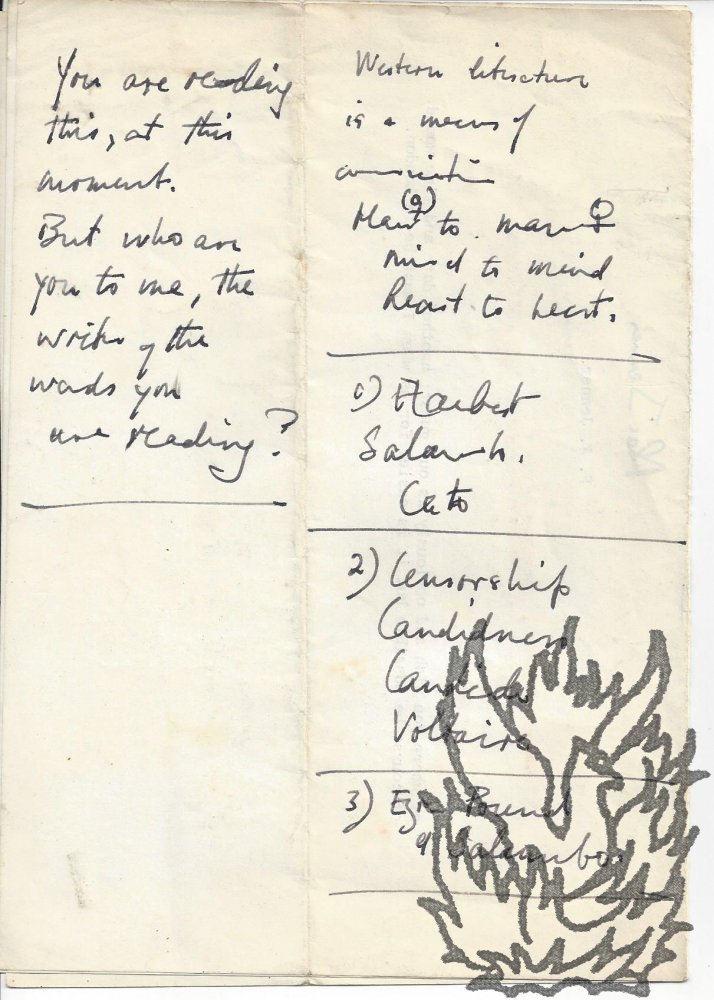 You are reading
this, at this
moment.
But who are
you to me, the
writer of the
words you
are reading?
Western literature
is a means of
communication
(a)
Man to man ♀
mind to mind
heart to heart.
1) Flaubert
Salamb.
Cato
2) Censorship
Candidness
Candide
Voltaire
3) Ezra Pound
Salambo